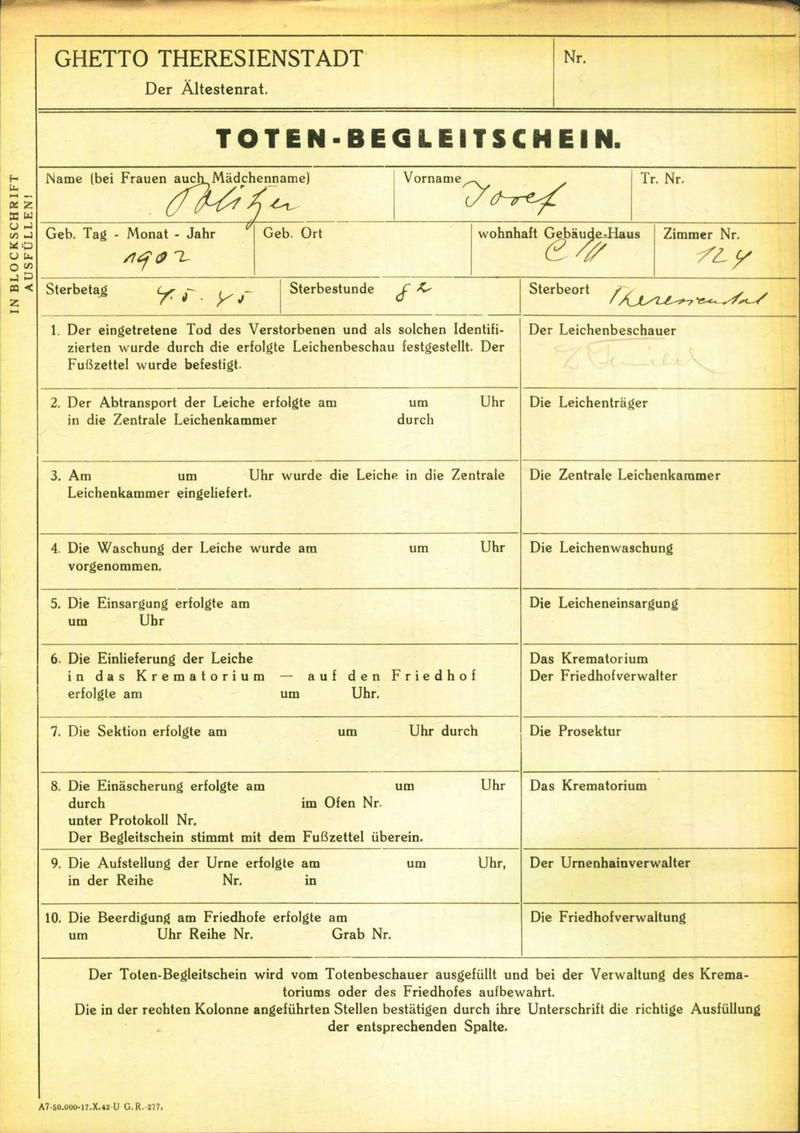 GHETTO THERESIENSTADT
Der Ältestenrat.
Nr.
TOTEN-BEGLEITSCHEIN.
IN BLOCKSCHRIFT
AUSFÜLLEN!
Name (bei Frauen auch Mädchenname)
Politzer
Vorname
Josef
Tr. Nr.
Geb. Tag - Monat - Jahr
1902
Geb. Ort
wohnhaft Gebäude-Haus
C III
Zimmer Nr.
124
Sterbetag
Sterbestunde
Sterbeort Theresienstadt
1. Der eingetretene Tod des Verstorbenen und als solchen Identifi-
zierten wurde durch die erfolgte Leichenbeschau festgestellt. Der
Fußzettel wurde befestigt.
Der Leichenbeschauer
2. Der Abtransport der Leiche erfolgte am um Uhr
in die Zentrale Leichenkammer durch
Die Leichenträger
3. Am um Uhr wurde die Leiche in die Zentrale
Leichenkammer eingeliefert.
Die Zentrale Leichenkammer
4. Die Waschung der Leiche wurde am um Uhr
vorgenommen.
Die Leichenwaschung
5. Die Einsargung erfolgte am
um Uhr
Die Leicheneinsargung
6. Die Einlieferung der Leiche
in das Krematorium — auf den Friedhof
erfolgte am um Uhr.
Das Krematorium
Der Friedhofverwalter
7. Die Sektion erfolgte am um Uhr durch
Die Prosektur
8. Die Einäscherung erfolgte am um Uhr
durch im Ofen Nr.
unter Protokoll Nr.
Der Begleitschein stimmt mit dem Fußzettel überein.
Das Krematorium
9. Die Aufstellung der Urne erfolgte am um Uhr,
in der Reihe Nr. in
Der Urnenhainverwalter
10. Die Beerdigung am Friedhofe erfolgte am
um Uhr Reihe Nr. Grab Nr.
Die Friedhofverwaltung
Der Toten-Begleitschein wird vom Totenbeschauer ausgefüllt und bei der Verwaltung des Krema-
toriums oder des Friedhofes aufbewahrt.
Die in der rechten Kolonne angeführten Stellen bestätigen durch ihre Unterschrift die richtige Ausfüllung
der entsprechenden Spalte.
A7-50.000-17.X.42-U G.R.-277.